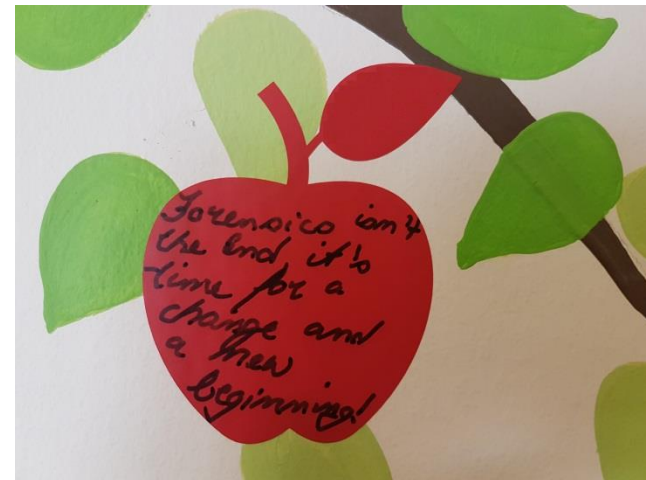 Forensics isn't
the End it's
time for a
change and
a new
beginning!